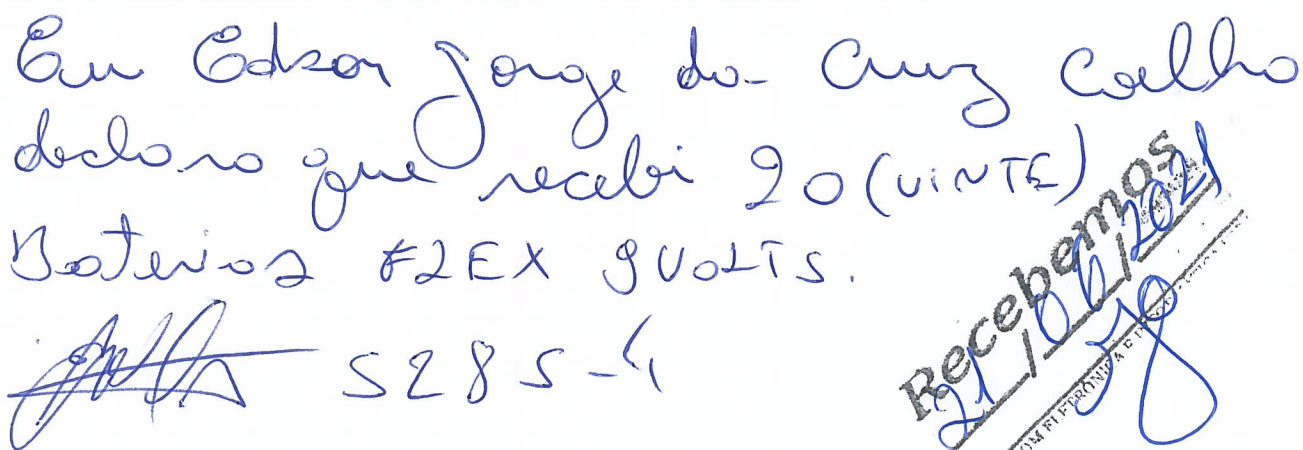 Eu Edson Jorge da Cruz Coelho
declaro que recebi 20 (VINTE)
Baterias FLEX 9VOLTS.
5285-4
Recebemos
21/06/2021